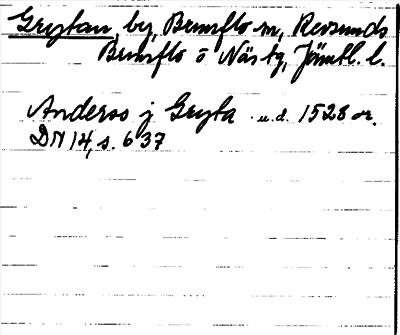 Grytan, by, Brunflo sn, Revsunds
Brunflo o Näs tg, Jämtl. l.
Anderss j Gryta u.d. 1528 or.
DN 14, s. 637